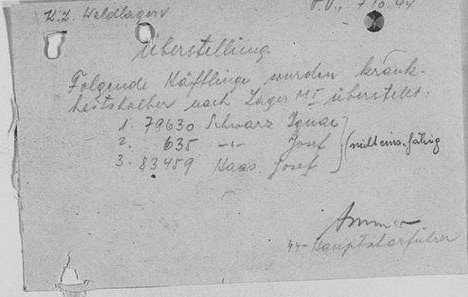 K.Z. Waldlager V
P.V., 7 10. 44
Überstellung
Folgende Häftlinge wurden krank-
heitshalber nach Lager M 5 überstellt:
1. 79630 Schwarz Ignac
2. 635 -"- Josef
3. 83459 Haas Josef
(nicht eins. fähig
SS-Hauptscharführer